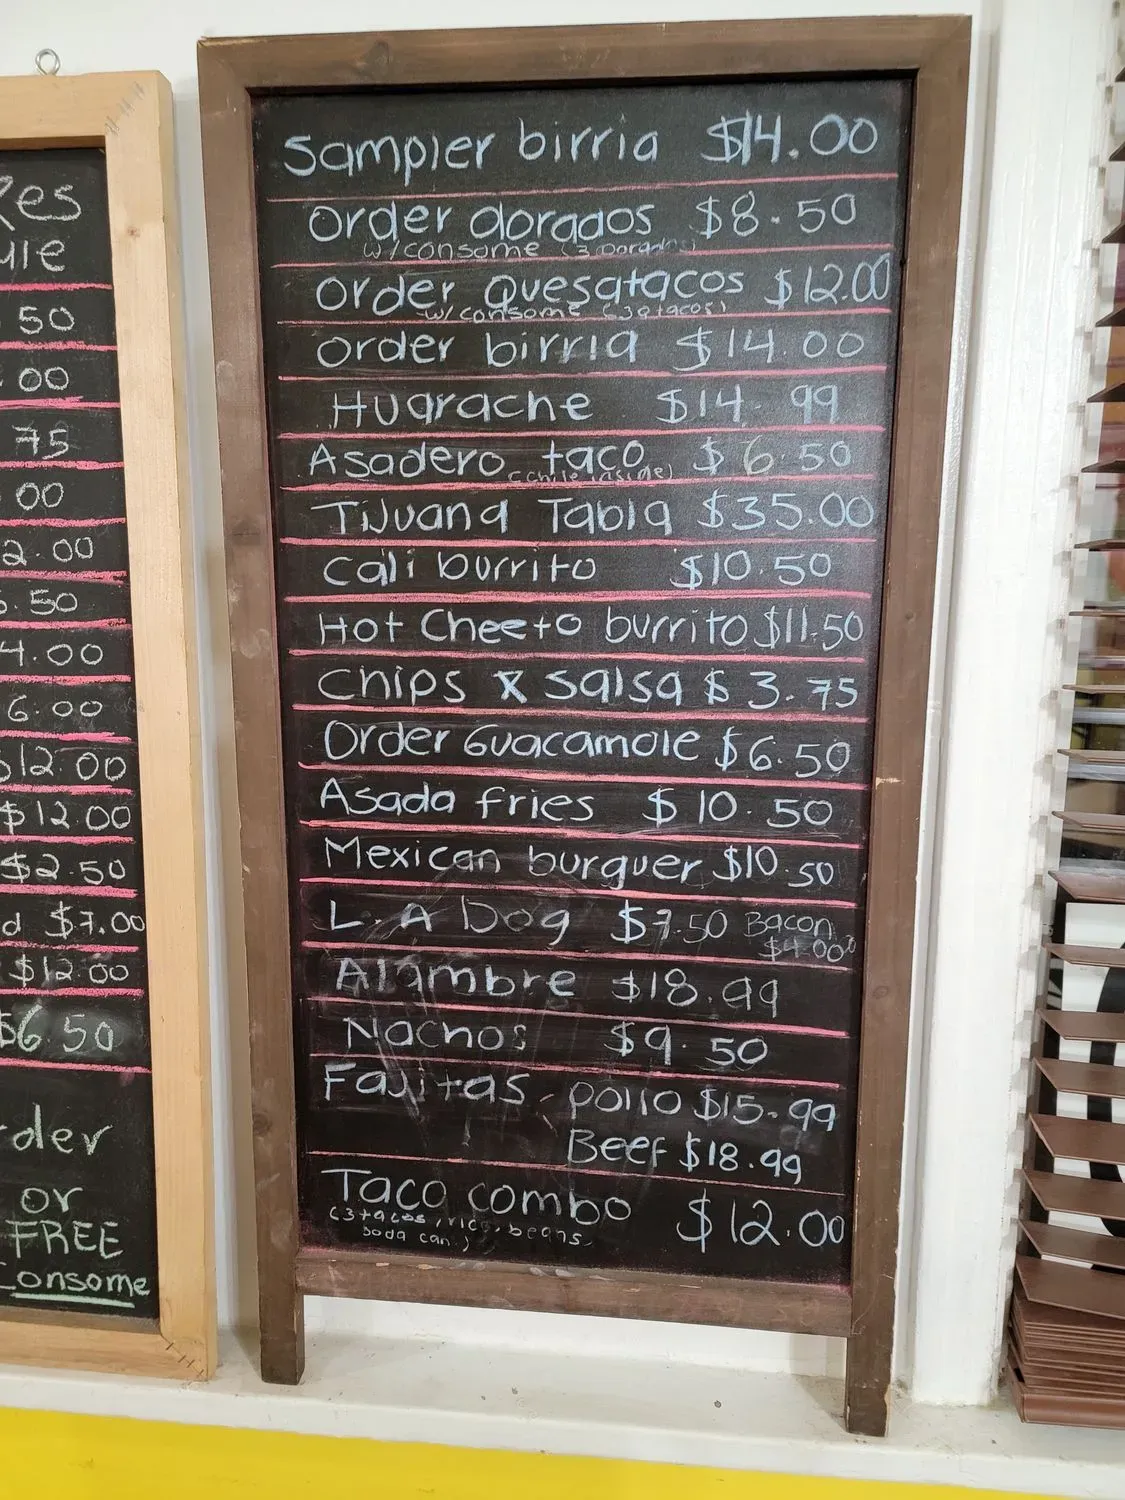 Res
50
00
75
00
2.00
.50
4.00
6.00
$12.00
$12.00
$2.50
d $7.00
$12.00
$6.50
der
or
FREE
Consome
Sampler birria $14.00
Order dorados $8.50
w/consome (3 Dorados)
Order Quesatacos $12.00
w/consome (3 qtacos)
Order birria $14.00
Huarache $14.99
Asadero taco $6.50
(Chile inside)
Tijuana Tabla $35.00
Cali burrito $10.50
Hot Cheeto burrito $11.50
Chips x Salsa $3.75
Order Guacamole $6.50
Asada fries $10.50
Mexican burguer $10.50
L.A Dog $7.50 Bacon
$4.00
Alambre $18.99
Nachos $9.50
Fajitas - pollo $15.99
Beef $18.99
Taco combo $12.00
(3 tacos, rice, beans,
soda can.)